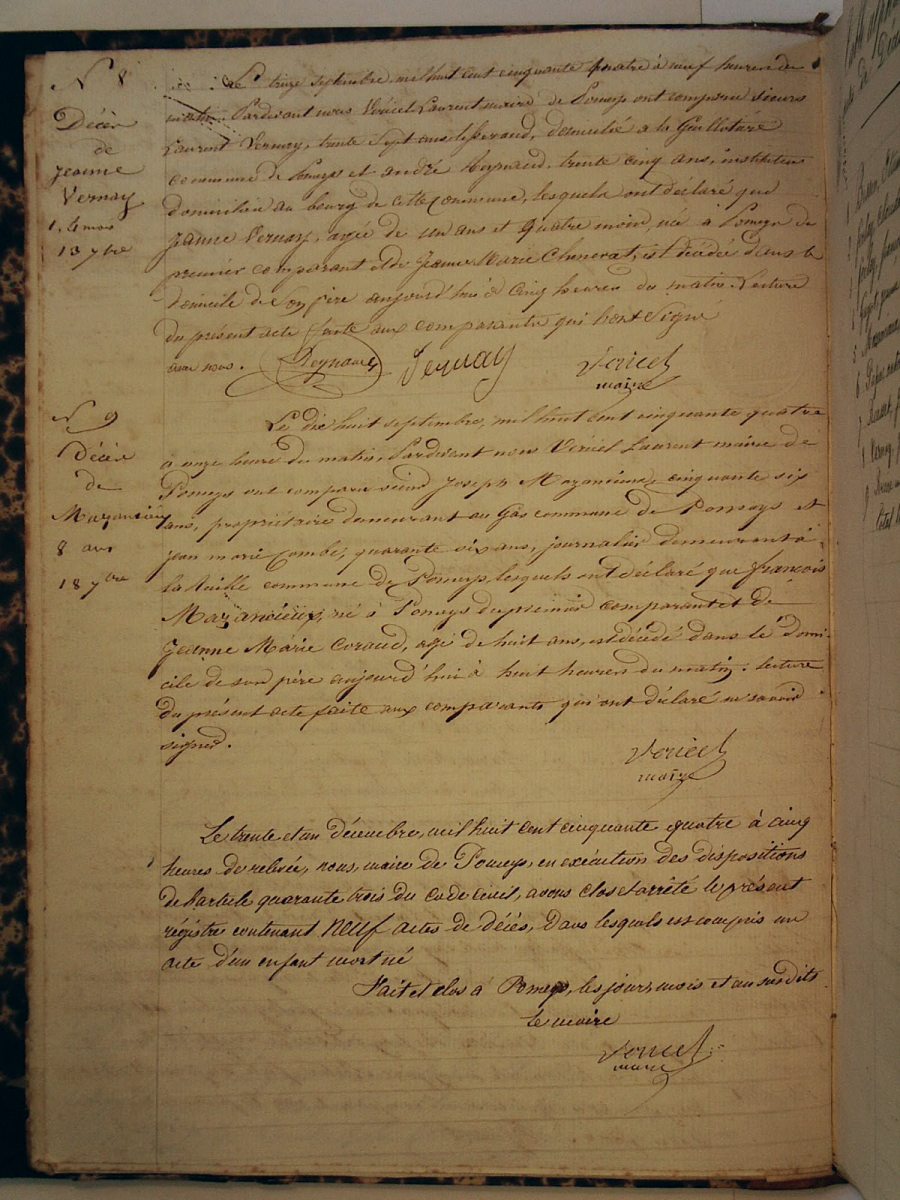 N° 8
Décès
de
Jeanne
Vernay
1. 4 mois
13 7bre
Le treize septembre mil huit cent cinquante quatre à neuf heures du
matin Pardevant nous Véricel Laurent maire de Pomeys ont comparu sieurs
Laurent Vernay, trente sept ans, domicilié a la Guillotière
commune de Pomeys et andré Reynaud, trente cinq ans, instituteur
domicilié au bourg de cette commune, lesquels ont déclaré que
Jeanne Vernay, agée de un ans et quatre mois, née à Pomeys du
premier comparant et de Jeanne Marie Chenerat, est décédée dans le
domicile de son père aujourd'hui à cinq heures du matin. Lecture
du présent acte faite aux comparants qui l'ont Signé
avec nous. Reynaud Vernay Vericel
maire
N° 9
Décès
de
Mazancieux
8 ans
18 7bre
Le dix huit septembre, mil huit cent cinquante quatre
a onze heure du matin, Pardevant nous Véricel Laurent maire de
Pomeys ont comparu sieurs Joseph Mazancieux, cinquante six
ans, propriétaire demeurant au Gas commune de Pomeys et
jean marie Combe, quarante six ans, journalier demeurant à
la commune de Pomeys, lesquels ont déclaré que françois
Mazancieux, né à Pomeys du premier comparant et de
Jeanne Marie Coraud, agé de huit ans, est décédé dans le domi-
cile de son père aujourd'hui à huit heures du matin. Lecture
du présent acte faite aux comparants qui ont déclaré ne savoir
signer.
Vericel
maire
Le trente et un décembre, mil huit cent cinquante quatre à cinq
heures de relevée, nous, maire de Pomeys, en exécution des dispositions
de l'article quarante trois du code civil, avons clos et arrêté le présent
régistre contenant neuf actes de décès, dans lesquels est compris un
acte d'un enfant mort né
Fait et clos à Pomeys, les jour, mois et an susdits
Le maire
Vericel
maire